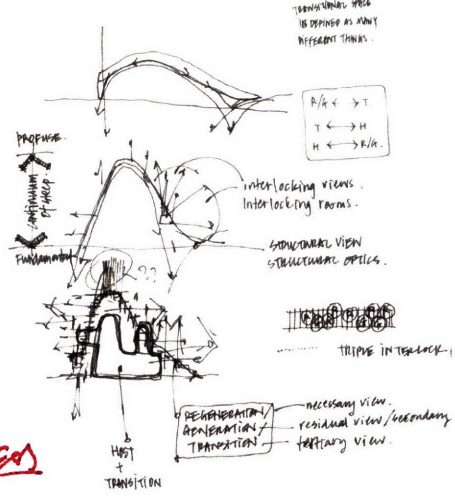 TRANSITIONAL SPACE
IS DEFINED AS MANY
DIFFERENT THINGS.
R/G ← → T
T ←→ H
H ←→ R/G.
PROFUSE.
CONTINUUM
OF SLEEP.
Fundamental
interlocking views.
Interlocking rooms.
STRUCTURAL VIEW
STRUCTURAL OPTICS.
??
TRIPLE INTERLOCK,
REGENERATION/
GENERATION
TRANSITION
necessary view.
residual view/secondary
tertiary view.
HOST
+
TRANSITION